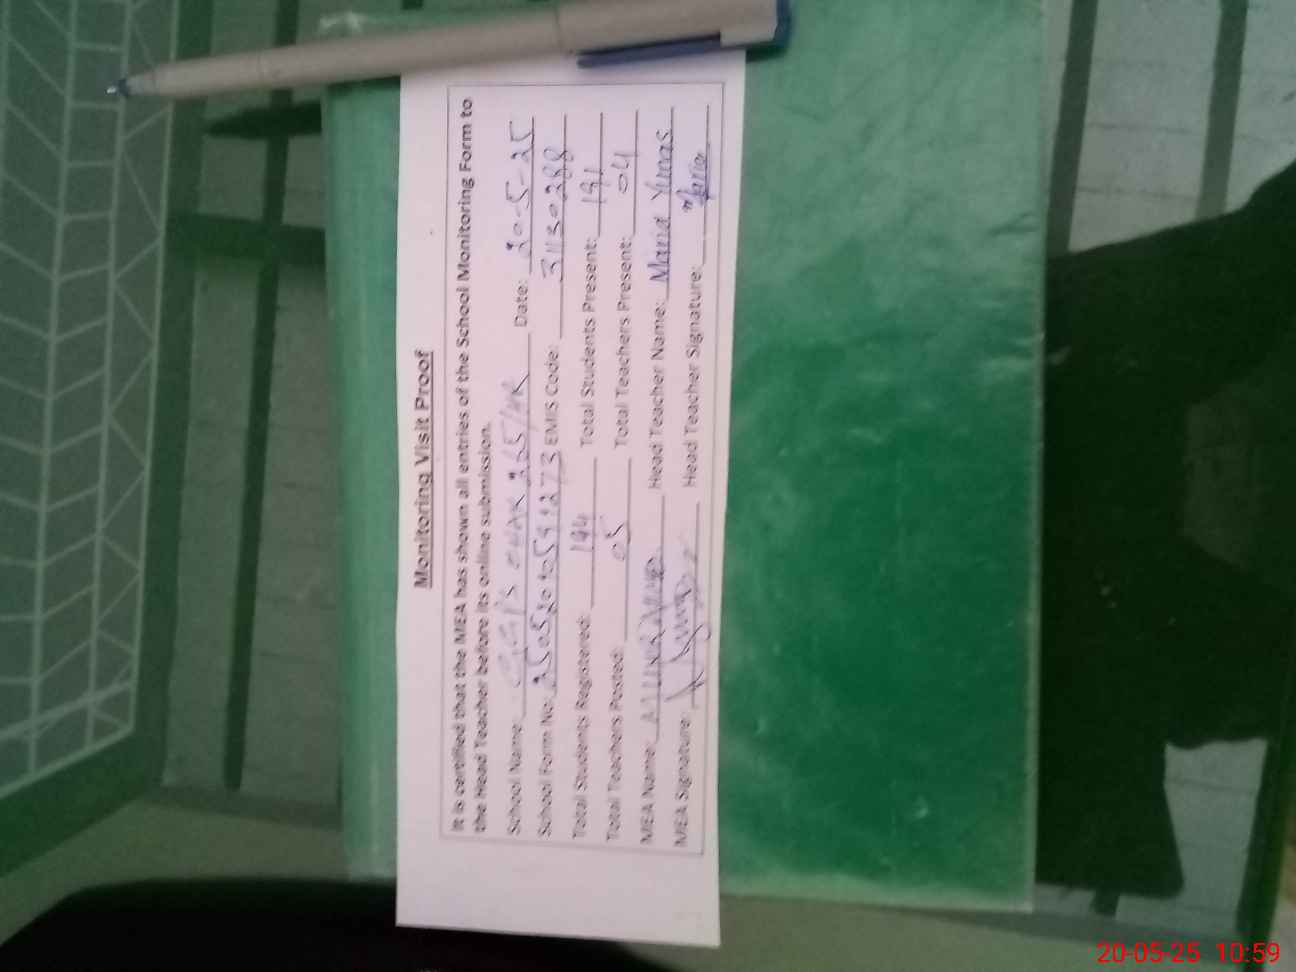 Monitoring Visit Proof
It is certified that the MEA has shown all entries of the School Monitoring Form to
the Head Teacher before its online submission.
School Name: CHAK 265/HR Date: 20-5-25
School Form No: EMIS Code: 31130288
Total Students Registered: 194 Total Students Present: 191
Total Teachers Posted: 05 Total Teachers Present: 04
MEA Name: Head Teacher Name: Maria Yunas
MEA Signature: Head Teacher Signature: Maria
20-05-25 10:59